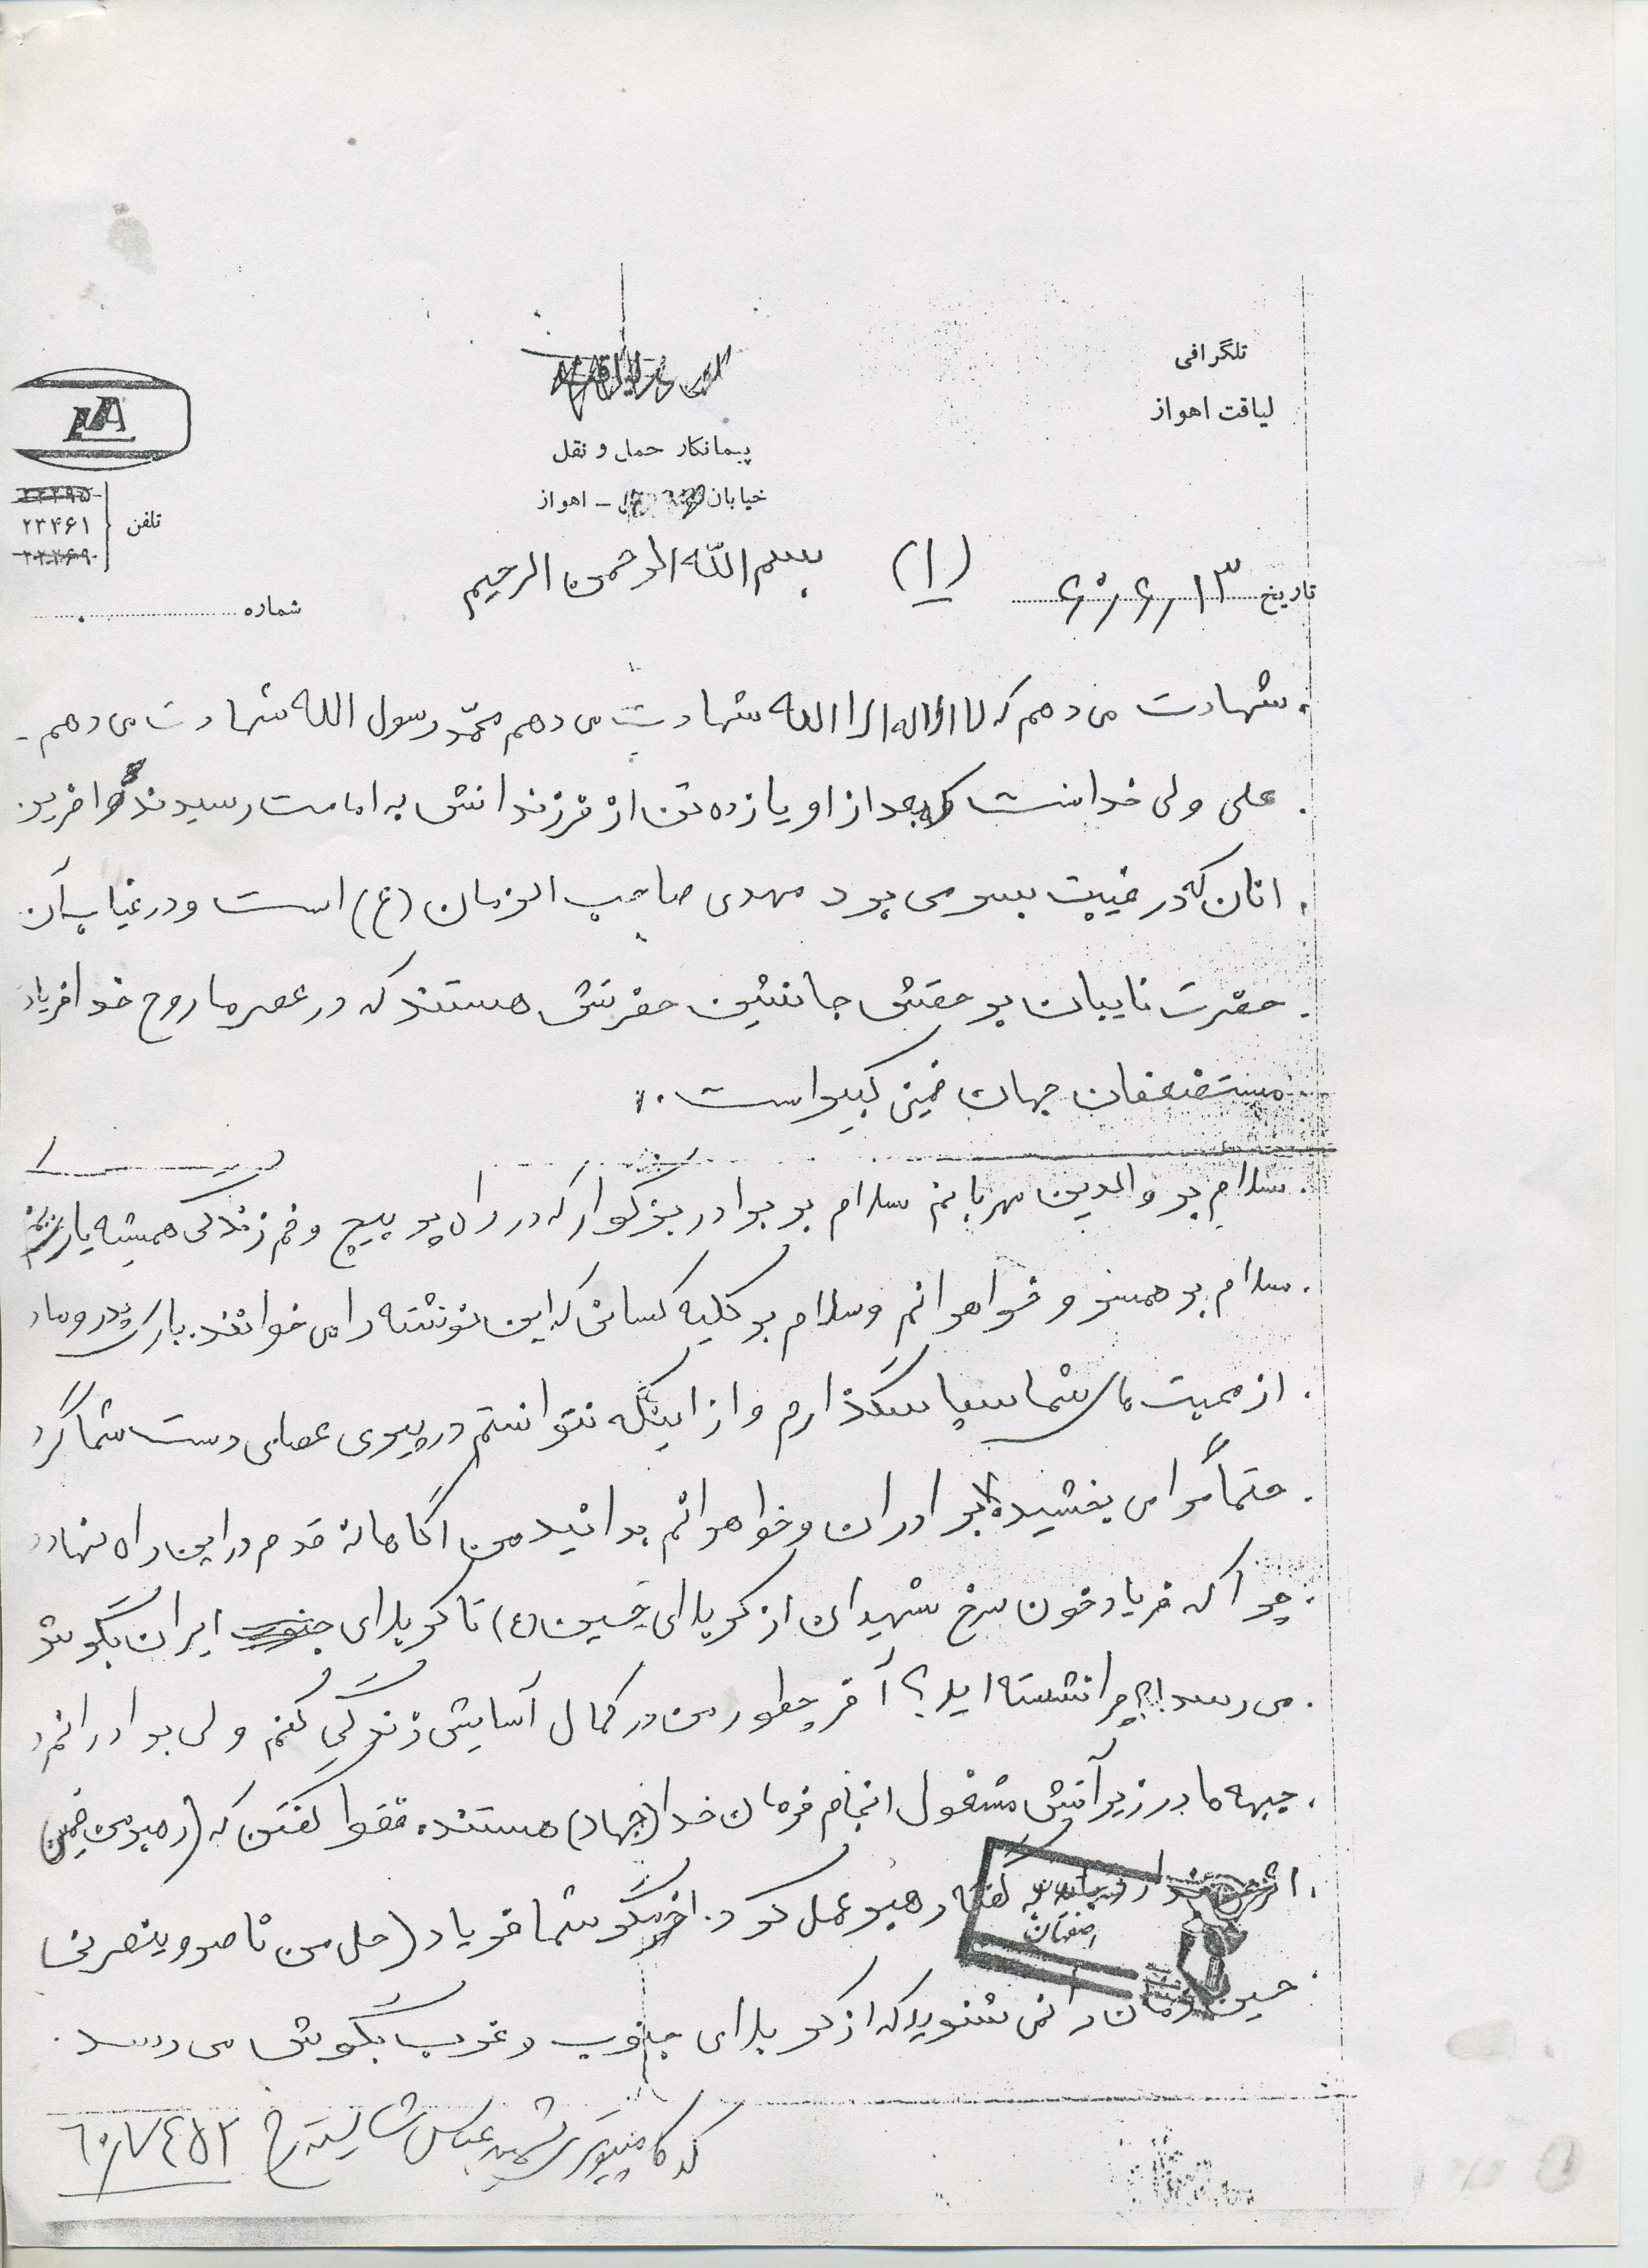 تلگرافی
لیاقت اهواز
پیمانکار حمل و نقل
خیابان - اهواز
تلفن
۲۳۴۶۱
تاریخ ۶۰٫۶٫۱۳
(۱)
بسم الله الرحمن الرحیم
شماره
شهادت می دهم که لا اله الا الله شهادت می دهم محمّد رسول الله شهادت می دهم
علی ولی خداست که بعد از او یازده تن از فرزندانش به امامت رسیدند و اخرین
انان که در غیبت بسر می برد مهدی صاحب الزمان (ع) است و در غیاب آن
حضرت نایبان بر حقش جانشین حضرتش هستند که در عصر ما روح خدا فریاد
مستضعفان جهان خمینی کبیر است.
سلام بر والدین مهربانم سلام بر برادر بزرگوار که در راه پر پیچ و خم زندگی همیشه یار
سلام بر همسر و خواهرانم و سلام بر کلیه کسانی که این نوشته را می خوانند. باری پدر و مادر
از محبت های شما سپاسگذارم و از اینکه نتوانستم در پیری عصای دست شما گر
حتماً مرا می بخشید برادران و خواهرانم بدانید من اگاهانه قدم در این راه نهاد
چرا که فریاد خون سرخ شهیدان از کربلای حسین (ع) تا کربلای ایران بگوش
می رسد!؟ چرا نشسته اید؟ آخر چطور من در کمال آسایش زندگی کنم ولی برادرانم د
جبهه ها در زیر آتش مشغول انجام فرمان خدا (جهاد) هستند. فقط گفتن که (رهبر من خمینی
اثر ندارد باید به گفته رهبر عمل کرد. اخر مگر شما فریاد (هل من ناصر ینصرنی
حسین زمان را نمی شنوید که از کربلای جنوب و غرب بگوش می رسد.
اصفهان
کد کامپیوتری شهید عباس شایسته رخ ۶۰۷۴۵۲